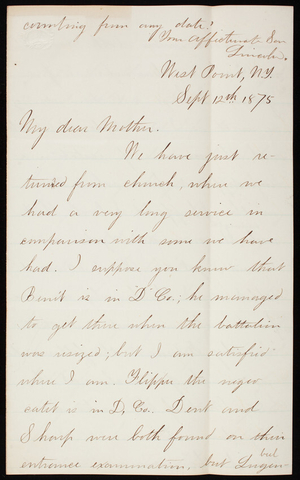 counting from any date?
Your Affectionate Son
Lincoln.
West Point, N.Y.
Sept 12th 1875
My dear Mother.
We have just re-
turned from church, where we
had a very long service in
comparison with some we have
had. I suppose you knew that
is in "D" Co.; he managed
to get there when the battalion
was resized; but I am satisfied
where I am. Flipper the negro
cadet is in D. Co. Dent and
Sharp were both found on their
entrance examination, but
had